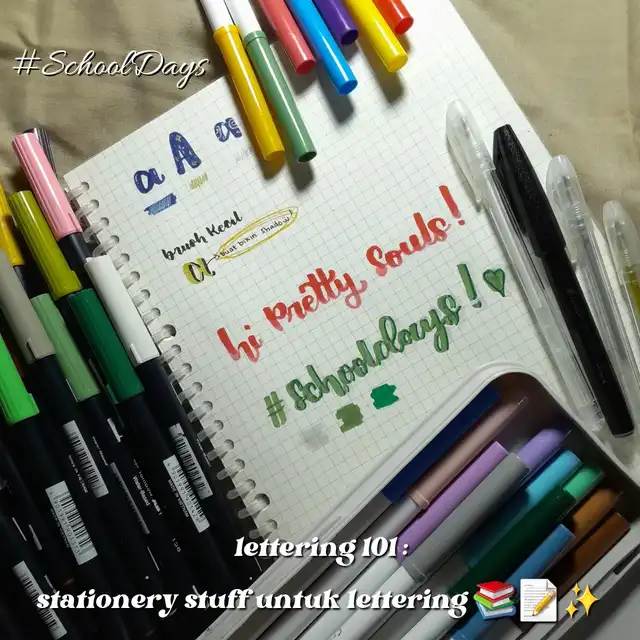 #SchoolDays
a A a
brush kecil
a buat bikin shadow
hi Pretty Souls!
#Schooldays!
lettering 101:
stationery stuff untuk lettering📚📝✨